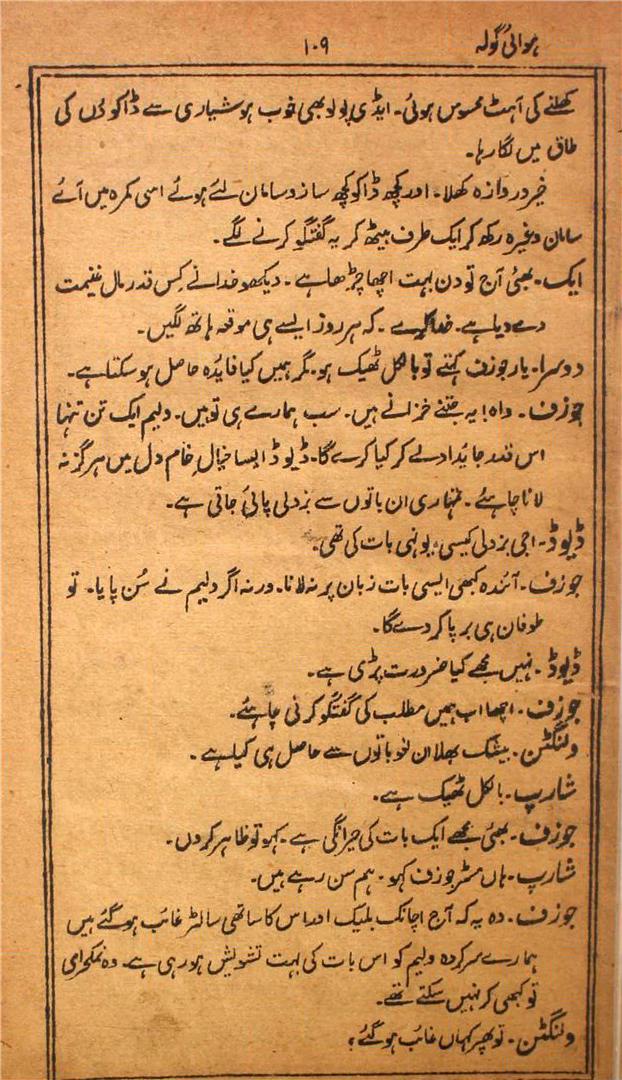 ہوائی گولہ ۱۰۹
کھلنے کی آہٹ محسوس ہوئی۔ ایڈی پولو بھی خوب ہوشیاری سے ڈاکوؤں کی
طاق میں لگا رہا۔
خیر دروازہ کھلا۔ اور کچھ ڈاکو کچھ ساز و سامان لئے ہوئے اسی کمرہ میں آئے
سامان وغیرہ رکھ کر ایک طرف بیٹھ کر یہ گفتگو کرنے لگے۔
ایک۔ بھئی آج تو دن بہت اچھا چڑھا ہے۔ دیکھو خدا نے کس قدر مال غنیمت
دے دیا ہے۔ خدا کرے۔ کہ ہر روز ایسے ہی موقعہ ہاتھ لگیں۔
دوسرا۔ یار جوزف کہتے تو بالکل ٹھیک ہو۔ مگر ہمیں کیا فایدہ حاصل ہو سکتا ہے۔
جوزف۔ واہ! یہ جتنے خزانے ہیں۔ سب ہمارے ہی تو ہیں۔ ولیم ایک تن تنہا
اس قدر جایداد لے کر کیا کرے گا۔ ڈیوڈ ایسا خیال خام دل میں ہرگز نہ
لانا چاہئے۔ تمہاری ان باتوں سے بزدلی پائی جاتی ہے۔
ڈیوڈ۔ اجی بزدلی کیسی، یونہی بات کی تھی۔
جوزف۔ آئندہ کبھی ایسی بات زبان پر نہ لانا۔ ورنہ اگر ولیم نے سُن پایا۔ تو
طوفان ہی برپا کر دے گا۔
ڈیوڈ۔ نہیں مجھے کیا ضرورت پڑی ہے۔
جوزف۔ اچھا اب ہمیں مطلب کی گفتگو کرنی چاہئے۔
ولنگٹن۔ بیشک بھلا ان لغو باتوں سے حاصل ہی کیا ہے۔
شارپ۔ بالکل ٹھیک ہے۔
جوزف۔ بھئی مجھے ایک بات کی حیرانگی ہے۔ کہو تو ظاہر کردوں۔
شارپ۔ ہاں مسٹر جوزف کہو۔ ہم سن رہے ہیں۔
جوزف۔ وہ یہ کہ آج اچانک بلیک اور اس کا ساتھی سالٹر غائب ہو گئے ہیں
ہمارے سرکردہ ولیم کو اس بات کی بہت تشویش ہو رہی ہے۔ وہ نمکحرامی
تو کبھی کر نہیں سکتے تھے۔
ولنگٹن۔ تو پھر کہاں غائب ہو گئے؟